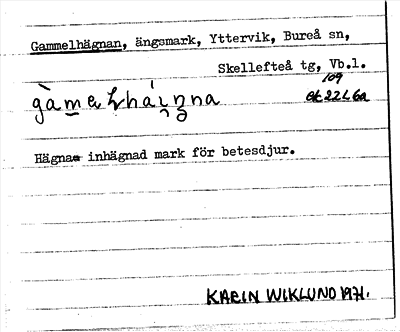 Gammelhägnan, ängsmark, Yttervik, Bureå sn,
Skellefteå tg, Vb.l.
109
gàmeɫháɩnna ek 22L 6a
Hägna inhägnad mark för betesdjur.
KARIN WIKLUND 1971.